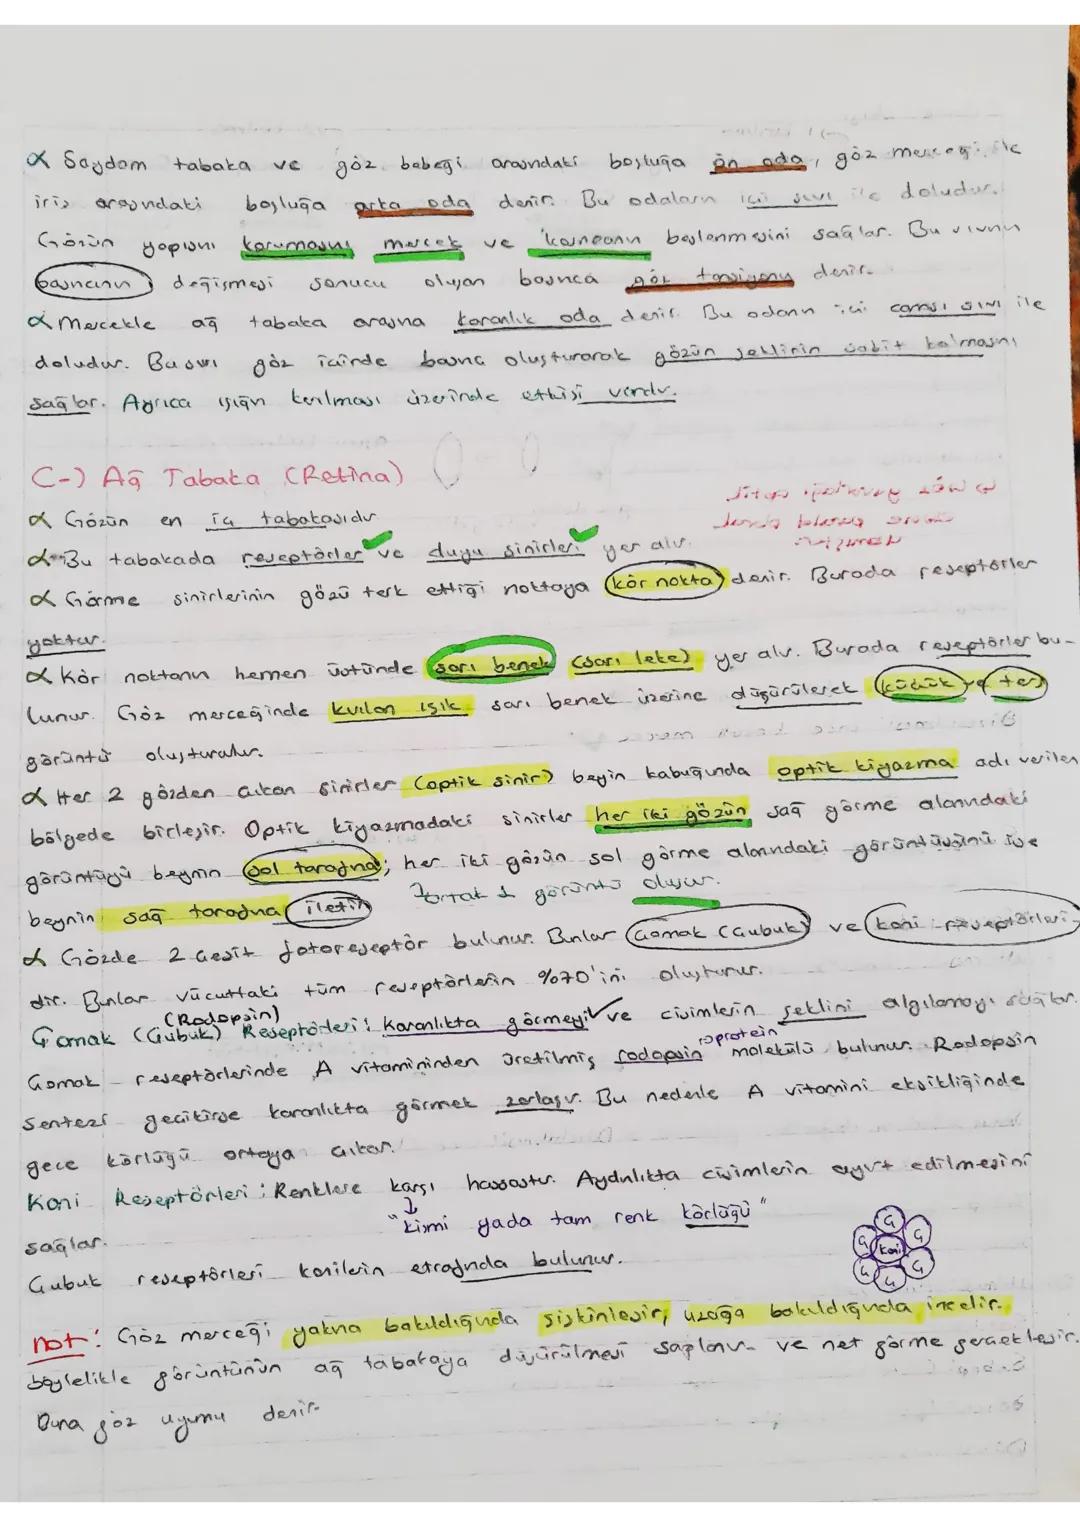 α Saydam tabaka ve göz bebeği arasındaki boşluğa ön oda, göz merceği ile
iris arasındaki boşluğa arka oda denir. Bu odaların içi sıvı ile doludur.
Gözün yapısını korumasını mercek ve korneanın beslenmesini sağlar. Bu sıvının
basıncının değişmesi sonucu oluşan basınca göz tansiyonu denir.
α Mercekle ağ tabaka arasına karanlık oda denir. Bu odanın içi camsı sıvı ile
doludur. Bu sıvı göz içinde basınç oluşturarak gözün şeklinin sabit kalmasını
sağlar. Ayrıca ışığın kırılması üzerinde etkisi vardır.
C-) Ağ Tabaka (Retina)
α Gözün en iç tabakasıdır
α Bu tabakada reseptörler ve duyu sinirleri yer alır.
α Görme sinirlerinin gözü terk ettiği noktaya kör nokta denir. Burada reseptörler
yoktur.
α Kör noktanın hemen üstünde sarı benek (sarı leke) yer alır. Burada reseptörler bu-
lunur. Göz merceğinde kırılan ışık sarı benek üzerine düşürülerek küçük ve ters
görüntü oluşturulur.
α Her 2 gözden çıkan sinirler (optik sinir) beyin kabuğunda optik kiyazma adı verilen
bölgede birleşir. Optik kiyazmadaki sinirler her iki gözün sağ görme alanındaki
görüntüyü beynin sol tarafına; her iki gözün sol görme alanındaki görüntüsünü ise
beynin sağ tarafına iletir
→ortak 1 görüntü oluşur.
α Gözde 2 çeşit fotoreseptör bulunur. Bunlar Çomak (Çubuk) ve koni reseptörleri-
dir. Bunlar vücuttaki tüm reseptörlerin %70'ini oluşturur.
(Rodopsin)
Çomak (Çubuk) Reseptörleri: Karanlıkta görmeyi ve cisimlerin şeklini algılamayı sağlar.
→protein
Çomak reseptörlerinde A vitamininden üretilmiş rodopsin molekülü bulunur. Rodopsin
sentezi gecikirse karanlıkta görmek zorlaşır. Bu nedenle A vitamini eksikliğinde
gece körlüğü ortaya çıkar.
Koni Reseptörleri: Renklere karşı hassastır. Aydınlıkta cisimlerin ayırt edilmesini
sağlar.
"kısmi yada tam renk körlüğü"
Çubuk reseptörleri konilerin etrafında bulunur.
Ç
Ç Ç
koni
Ç Ç
Ç
not: Göz merceği yakına bakıldığında şişkinleşir, uzağa bakıldığında incelir.
böylelikle görüntünün ağ tabakaya düşürülmesi saplanır ve net görme gerçekleşir.
Buna göz uyumu denir.